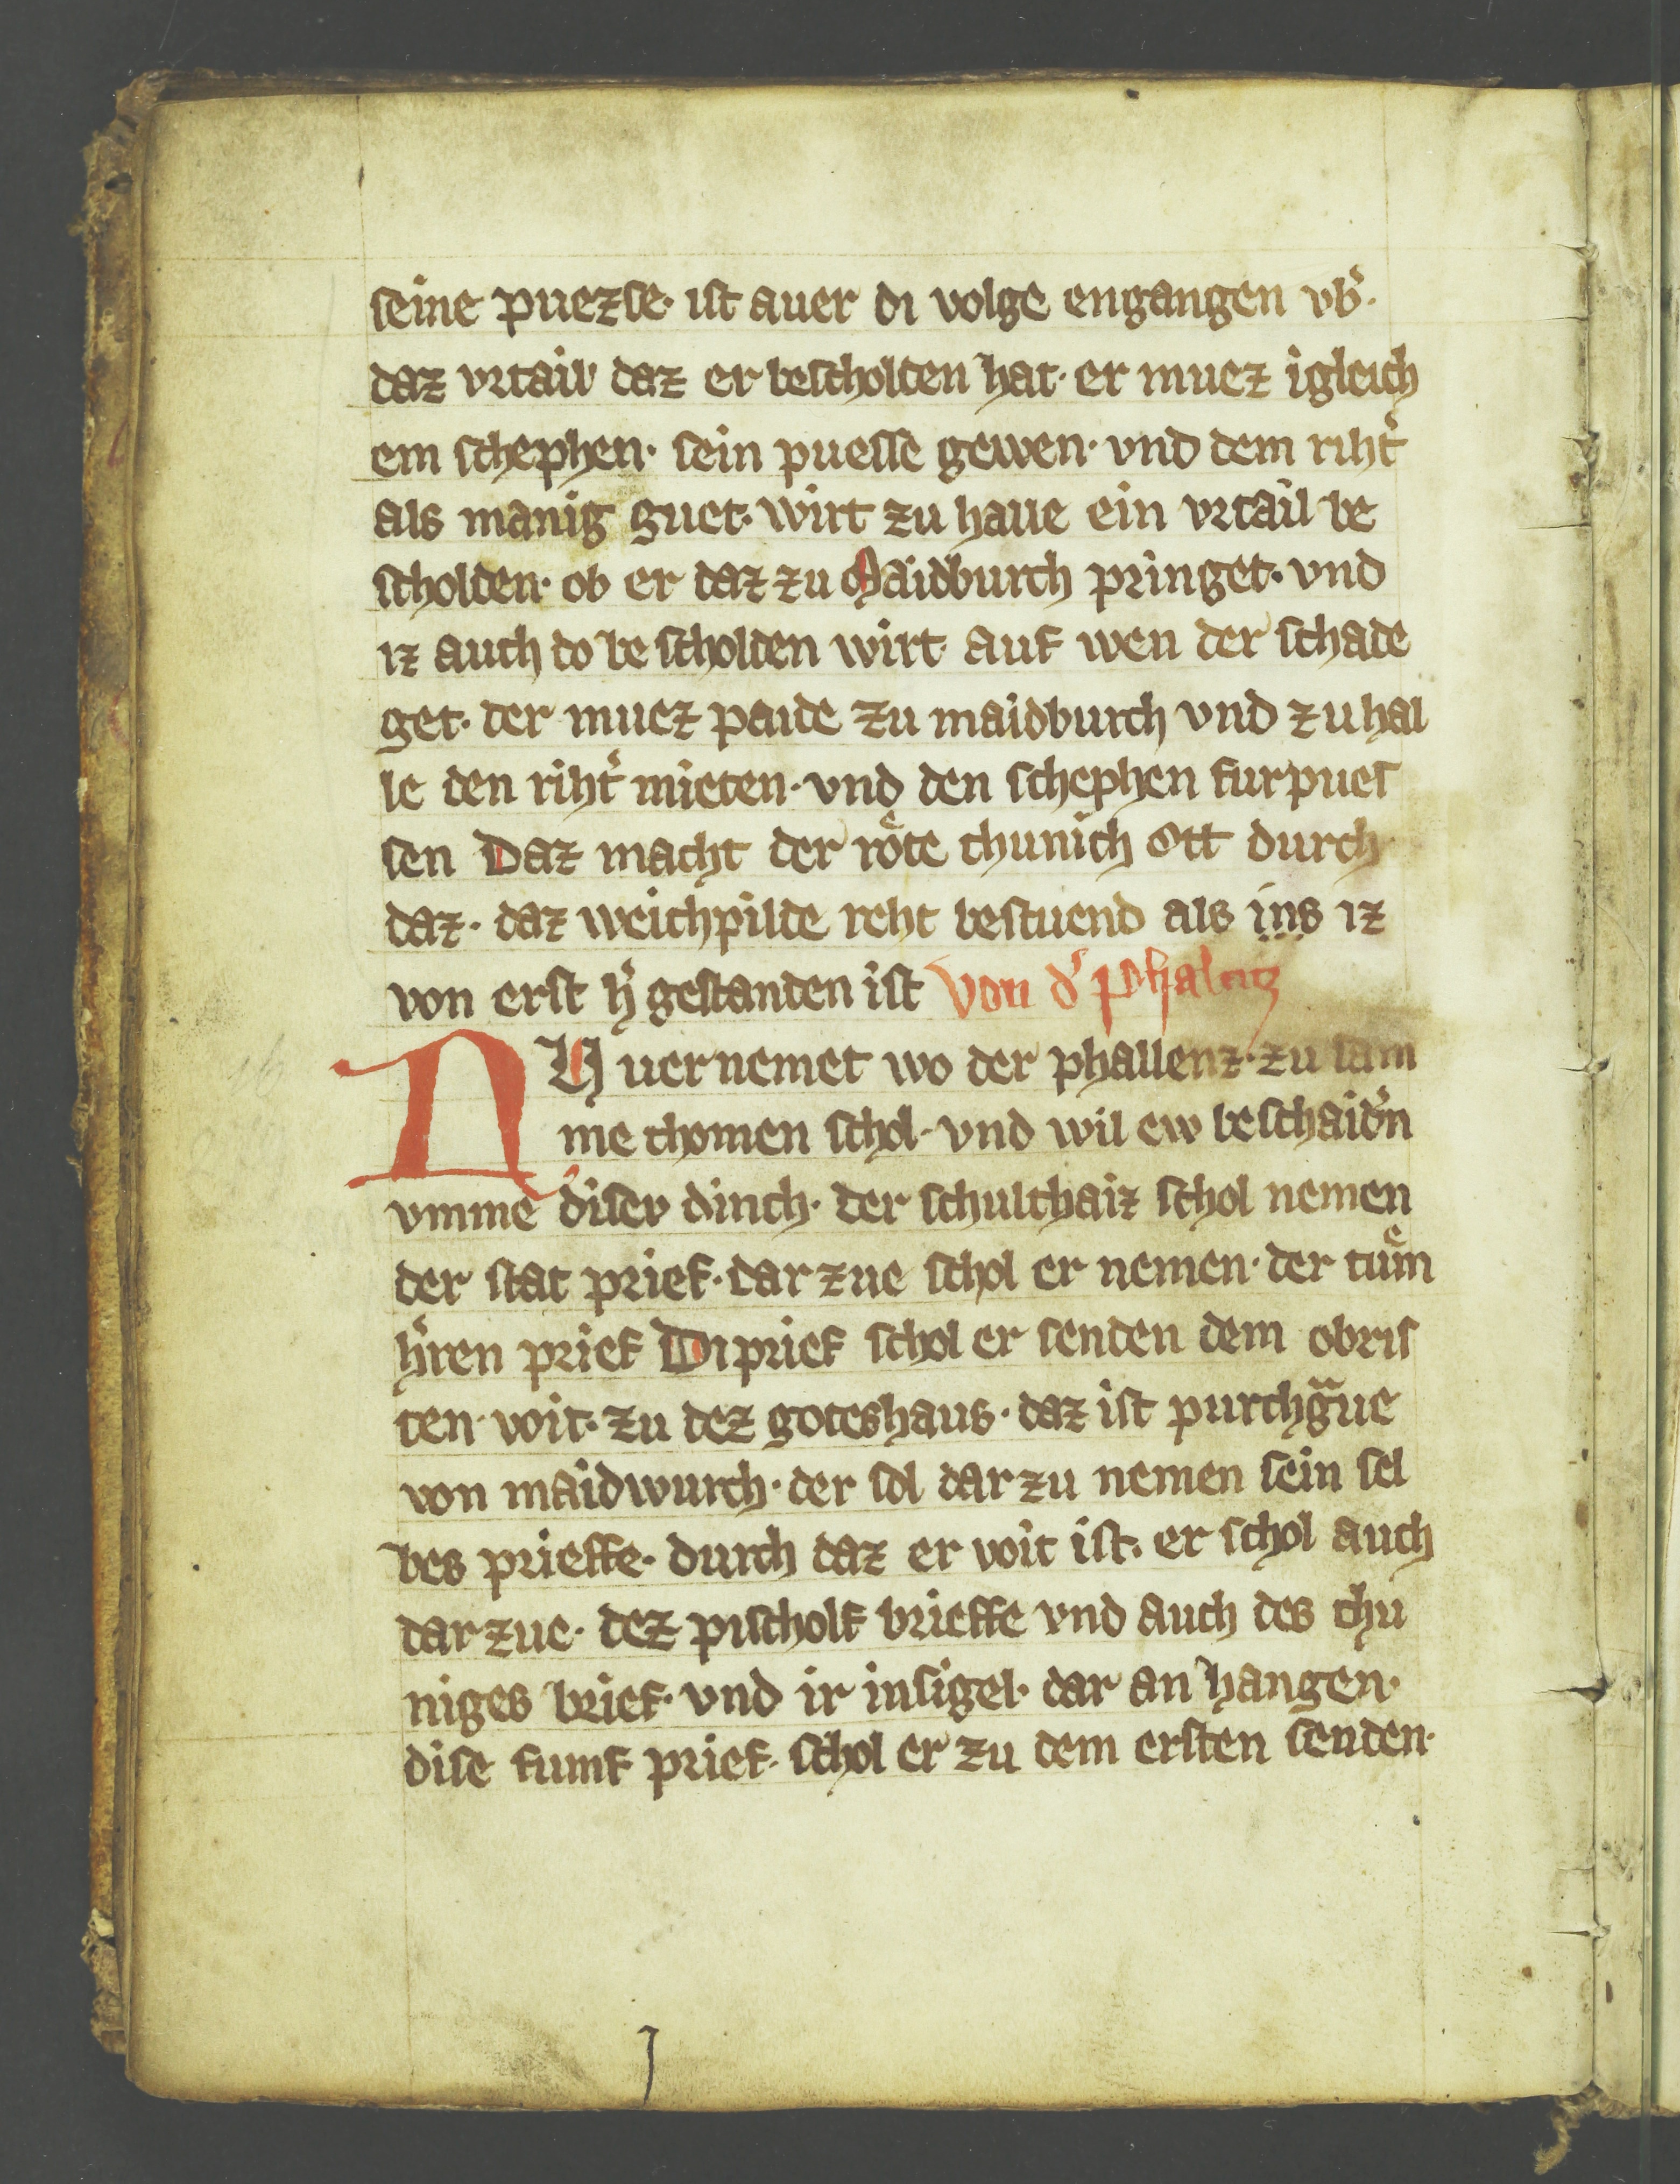 seine puezse· ist auer di volge engangen vb̾·
daz vrtaiv daz er bescholten hat· er muez igleich
em schephen· sein puesse gewen· vnd dem riht̾
als manig guet· wirt zu halle ein vrtail be
scholden· ob er daz zu Maidburch pringet· vnd
iz auch do be scholten wirt· auf wen der schade
get· der muez paide zu maidburch vnd zu hal
le den riht̾ mieten· vnd den schephen furpues
sen Daz macht der roͤte chunich Ott durch
daz· daz weichpilde reht bestuend als ins iz
von erst h̾ gestanden ist Von d̾ phalntz
NU uernemet wo der phallenz· zu sam
me chomen schol· vnd wil ew beschaid̾n
vmme disev dinch· der schulthaiz schol nemen
der stat prief· dar zue schol er nemen· der tuͤm
h̾ren prief Di prief schol er senden dem obris
ten· voit· zu dez goteshaus· daz ist purchgᵃue
von maidwurch· der sol dar zu nemen sein sel
bes prieffe· durch daz er voit ist· er schol auch
dar zue· dez pischolf brieffe vnd auch des chu
niges brief· vnd ir insigel· dar an hangen·
dise funf prief· schol er zu dem ersten senden·